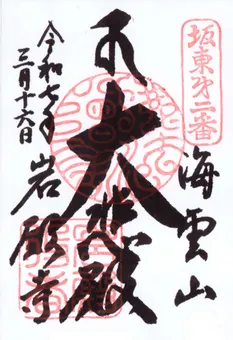 坂東第二番
海雲山
奉 大悲殿
岩殿寺
令和七年
三月十六日